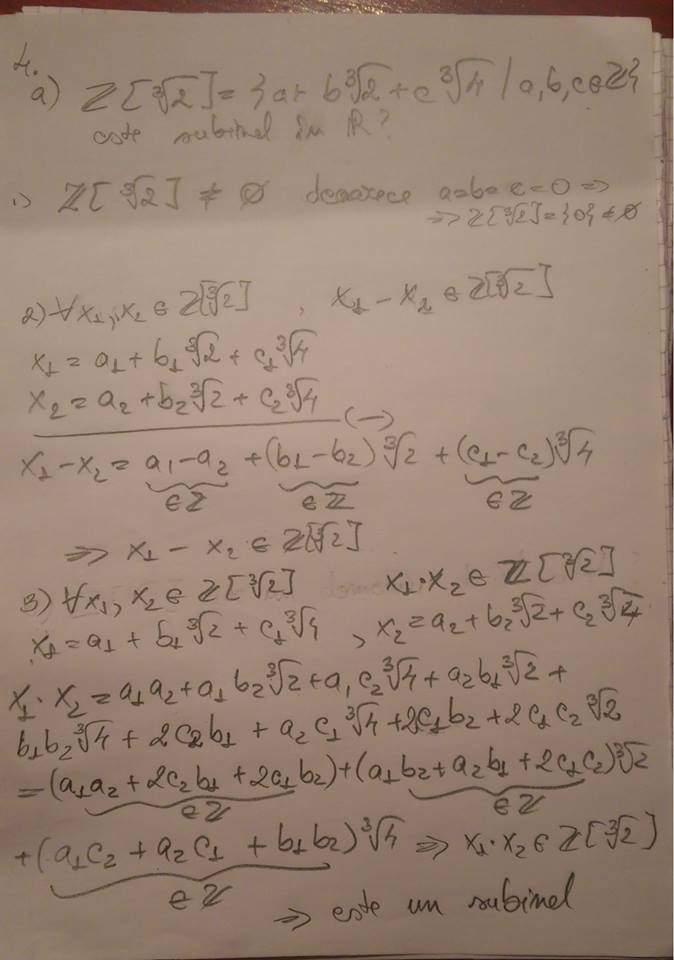 4.
a) ℤ[∛2] = {a + b∛2 + c∛4 / a, b, c ∈ ℤ}
este subinel în ℝ?
1) ℤ[∛2] ≠ ∅ deoarece a=b=c=0 =>
=> ℤ[∛2] = {0} ≠ ∅
2) ∀x₁, x₂ ∈ ℤ[∛2] , x₁ - x₂ ∈ ℤ[∛2]
x₁ = a₁ + b₁∛2 + c₁∛4
x₂ = a₂ + b₂∛2 + c₂∛4
(-)
x₁ - x₂ = a₁ - a₂ + (b₁ - b₂)∛2 + (c₁ - c₂)∛4
∈ℤ ∈ℤ ∈ℤ
=> x₁ - x₂ ∈ ℤ[∛2]
3) ∀x₁, x₂ ∈ ℤ[∛2] x₁·x₂ ∈ ℤ[∛2]
x₁ = a₁ + b₁∛2 + c₁∛4 , x₂ = a₂ + b₂∛2 + c₂∛4
x₁·x₂ = a₁a₂ + a₁b₂∛2 + a₁c₂∛4 + a₂b₁∛2 +
b₁b₂∛4 + 2c₂b₁ + a₂c₁∛4 + 2c₁b₂ + 2c₁c₂∛2
= (a₁a₂ + 2c₂b₁ + 2c₁b₂) + (a₁b₂ + a₂b₁ + 2c₁c₂)∛2
∈ℤ ∈ℤ
+ (a₁c₂ + a₂c₁ + b₁b₂)∛4 => x₁·x₂ ∈ ℤ[∛2]
∈ℤ
=> este un subinel